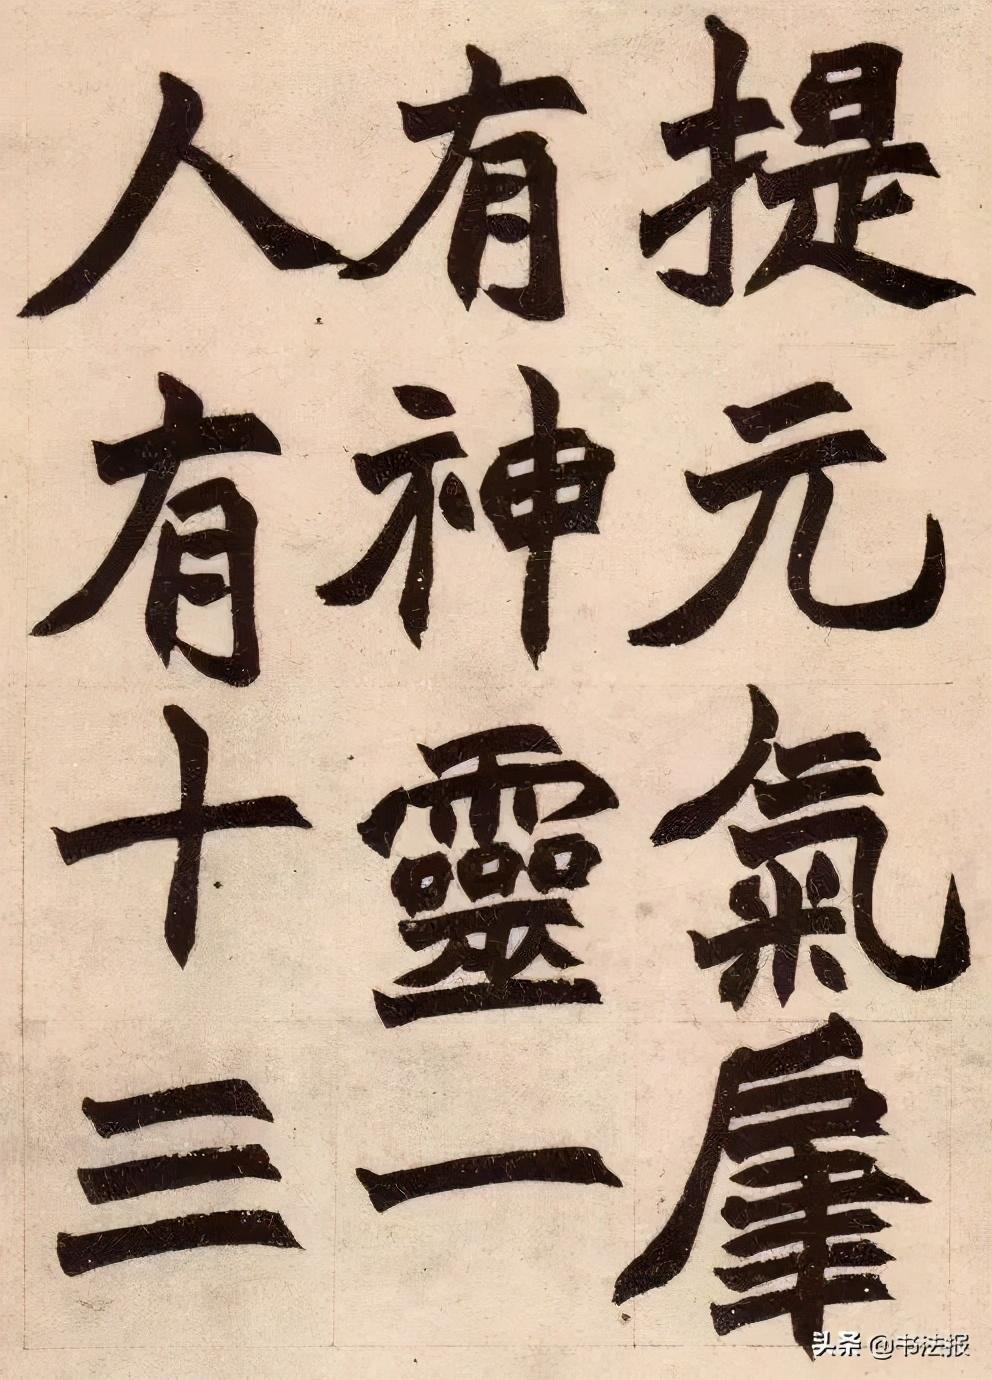 提元氣肁
有神靈一
人有十三
头条 @书法报